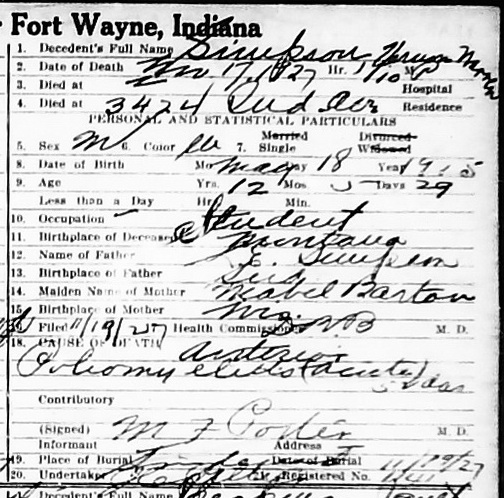 Fort Wayne, Indiana
1. Decedent's Full Name Simpson
2. Date of Death Nov. 17, 1927 Hr. 1:10 P M
3. Died at Hospital
4. Died at 3424 Residence
PERSONAL AND STATISTICAL PARTICULARS
Married Divorced
5. Sex M 6. Color W 7. Single Widowed
8. Date of Birth Mo. May Day 18 Year 1915
9. Age Yrs. 12 Mos. 5 Days 29
Less than a Day Hr. Min.
10. Occupation Student
11. Birthplace of Deceased Montana
12. Name of Father E. Simpson
13. Birthplace of Father Ind
14. Maiden Name of Mother Mabel Barton
15. Birthplace of Mother Mo.
Filed 11/19/27 Health Commissioner M. D.
18. CAUSE OF DEATH Anterior
Poliomyelitis (acute)
5 das
Contributory
(Signed) M F Porter M. D.
Informant Address
19. Place of Burial Date of Burial 11/19/27
20. Undertaker Registered No. 1141
1. Decedent's Full Name